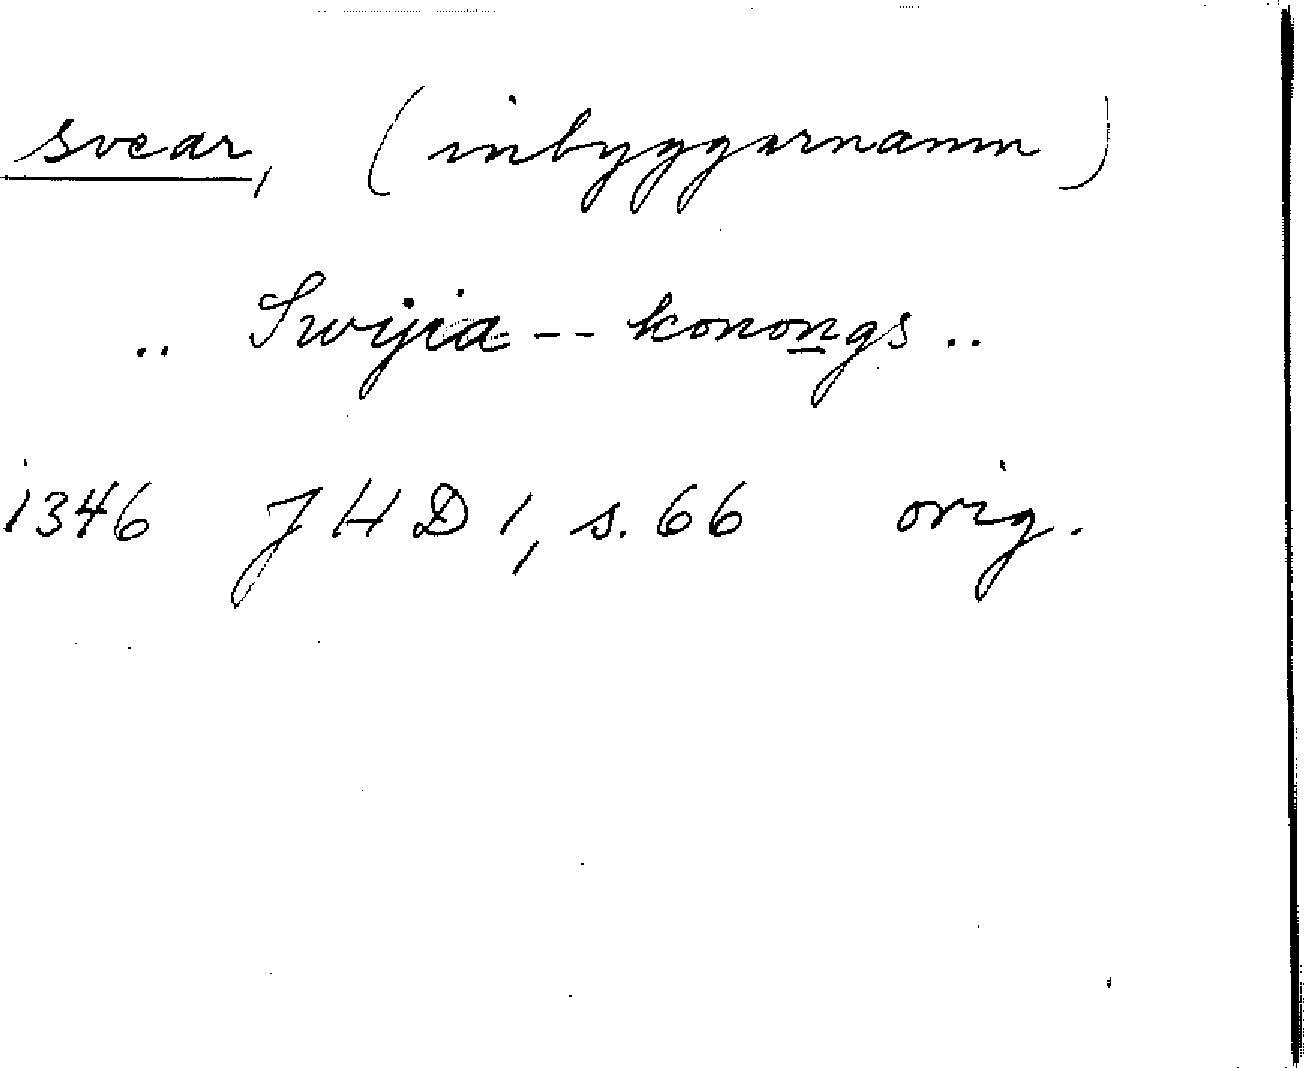 svear, (inbyggarnamn)
.. Swijia -- konongs ..
1346 JHD 1, s. 66 orig.